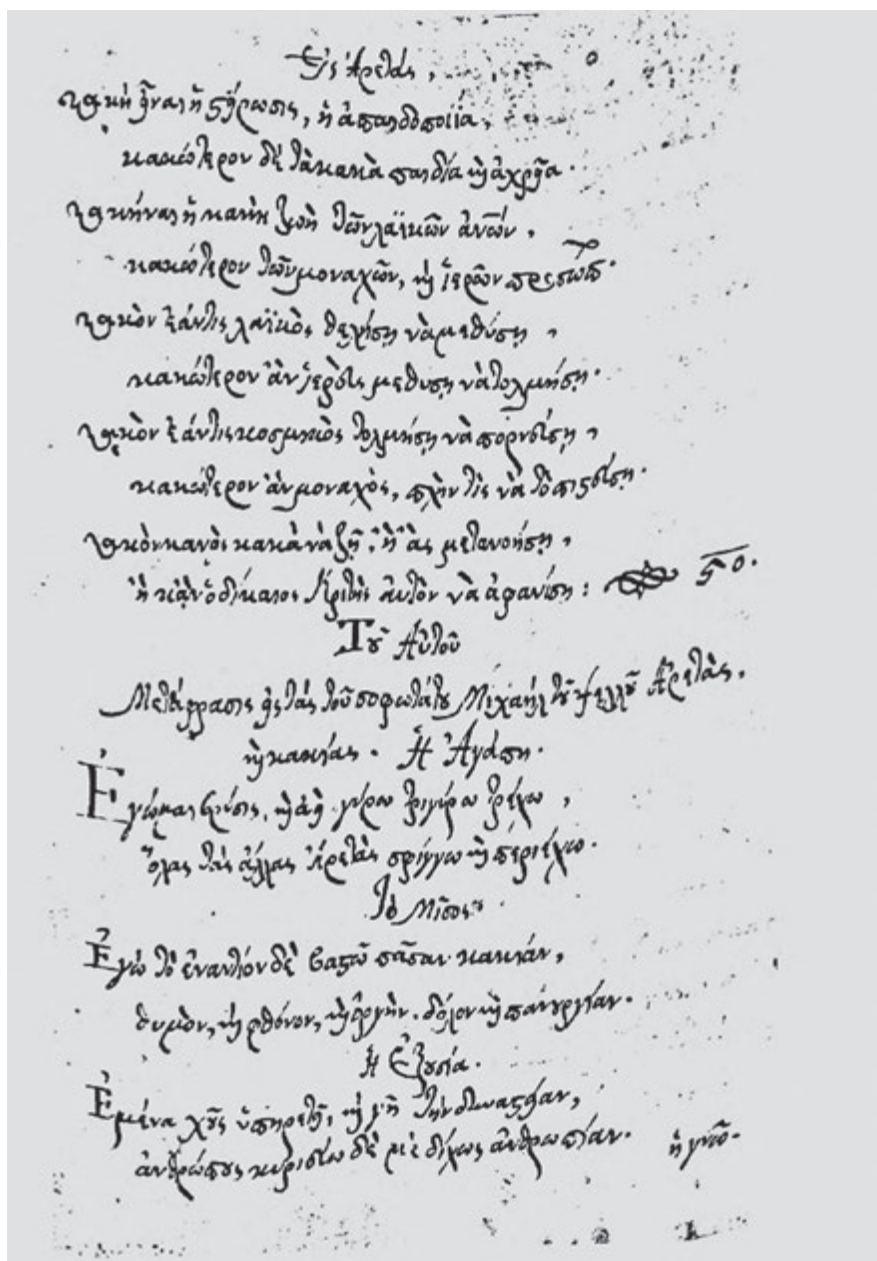 Εἰς Ἀρετάς,
κακὴ εἶναι ἡ στείρωσις, ἡ ἀπαιδοποιΐα,
κακώτερον δὲ τὰ κακὰ παιδία καὶ ἀχρεῖα.
κακὴ ναι ἡ κακὴ ζωὴ τῶν λαϊκῶν ἀνῶν,
κακώτερον τῶν μοναχῶν, καὶ ἱερῶν προσώπ.
κακὸν ἐάν τις λαϊκὸς θελήσῃ νὰ μεθύσῃ,
κακώτερον ἂν ἱερεὺς μεθύσῃ νὰ τολμήσῃ.
κακὸν ἐάν τις κοσμικὸς τολμήσῃ νὰ πορνεύσῃ,
κακώτερον ἂν μοναχὸς, πλὴν τίς νὰ τὸ πιστεύσῃ.
κακὸν κανεὶς κακὰ νὰ ζῇ, ἢ ἂς μετανοήσῃ,
ἢ κἂν ὁ δίκαιος Κριτὴς αὐτὸν νὰ ἀφανίσῃ: στο.
Τοῦ Αὐτοῦ
Μετάφρασις εἰς τὰς τοῦ σοφωτάτου Μιχαὴλ τοῦ Ψελλοῦ Ἀρετὰς,
καὶ κακίας. Ἡ Ἀγάπη.
Ἐγὼ καὶ γύρω τριγύρω τρέχω,
ὅλας τὰς ἄλλας Ἀρετὰς σφίγγω καὶ περιέχω.
Τὸ Μῖσος
Ἐγὼ τὸ ἐναντίον δὲ βαστῶ πᾶσαν κακίαν,
θυμὸν, καὶ φθόνον, καὶ ὀργὴν. δόλον καὶ πανουργίαν.
Ἡ Ἐξουσία.
Ἐμένα χεὶρ ὑπηρετεῖ, καὶ γῆ τὴν δυναστείαν,
ἀνθρώπους κυριεύω δὲ μὲ δίχως ἀνθρωπίαν. ἡ γνῶ-